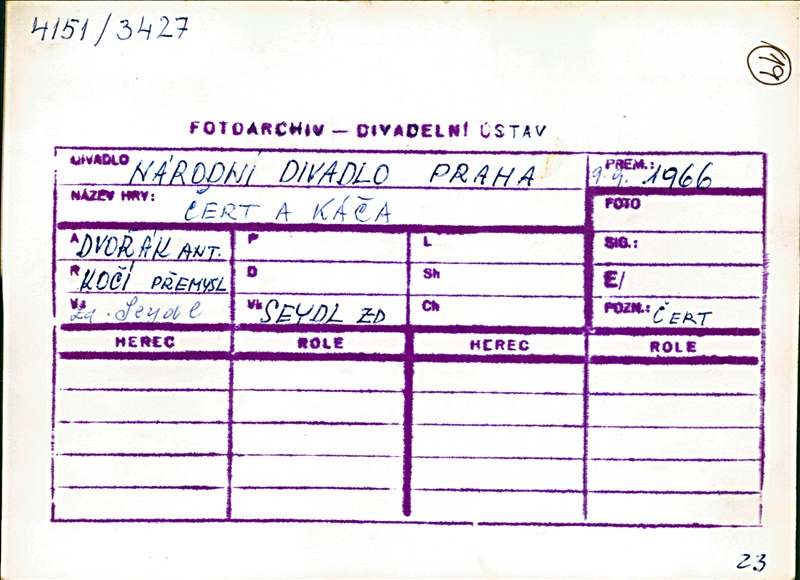 4151/3427
19
FOTOARCHIV — DIVADELNÍ ÚSTAV
DIVADLO NÁRODNÍ DIVADLO PRAHA PREM.: 9.9. 1966
NÁZEV HRY: ČERT A KÁČA FOTO
A DVOŘÁK ANT. P L SIG.:
R KOČÍ PŘEMYSL D Sh E/
Vs Zd. Seydl Vk SEYDL ZD Ch POZN.: ČERT
HEREC ROLE HEREC ROLE
23